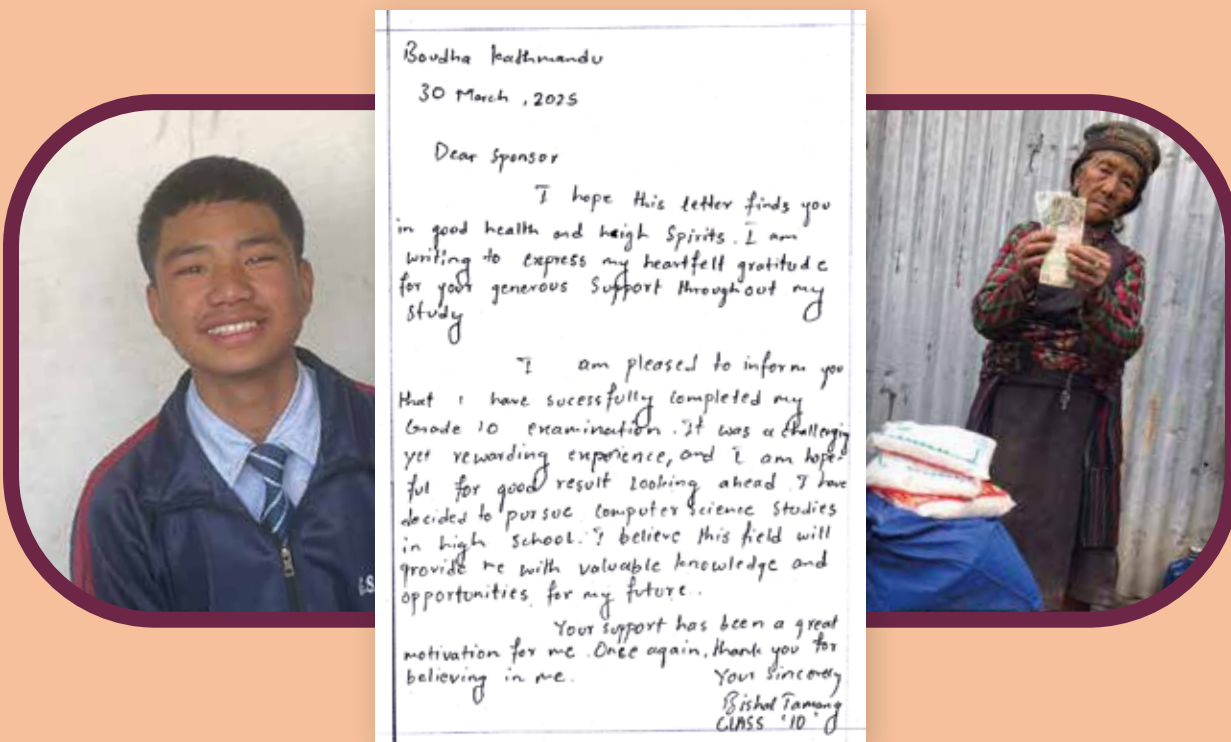 Boudha Kathmandu
30 March, 2025
Dear Sponsor
I hope this letter finds you
in good health and heigh Spirits. I am
writing to express my heartfelt gratitude
for your generous Support throughout my
study
I am pleased to inform you
that I have sucessfully completed my
Grade 10 examination. It was a challenging
yet rewarding experience, and I am hope-
ful for good result Looking ahead. I have
decided to pursue Computer Science Studies
in high School. I believe this field will
provide me with valuable knowledge and
opportunities for my future..
Your support has been a great
motivation for me. Once again, thank you for
believing in me.
Your Sincerely
Bishal Tamang
CLASS '10'